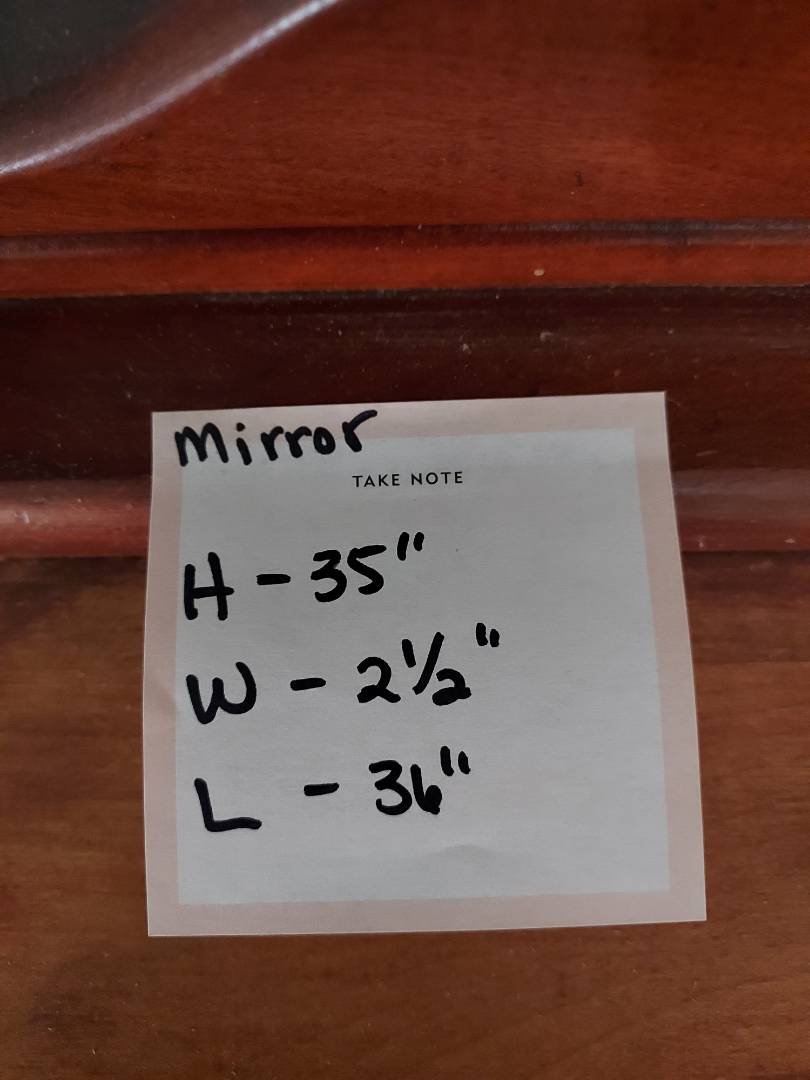 Mirror
TAKE NOTE
H - 35"
W - 2 1/2"
L - 36"